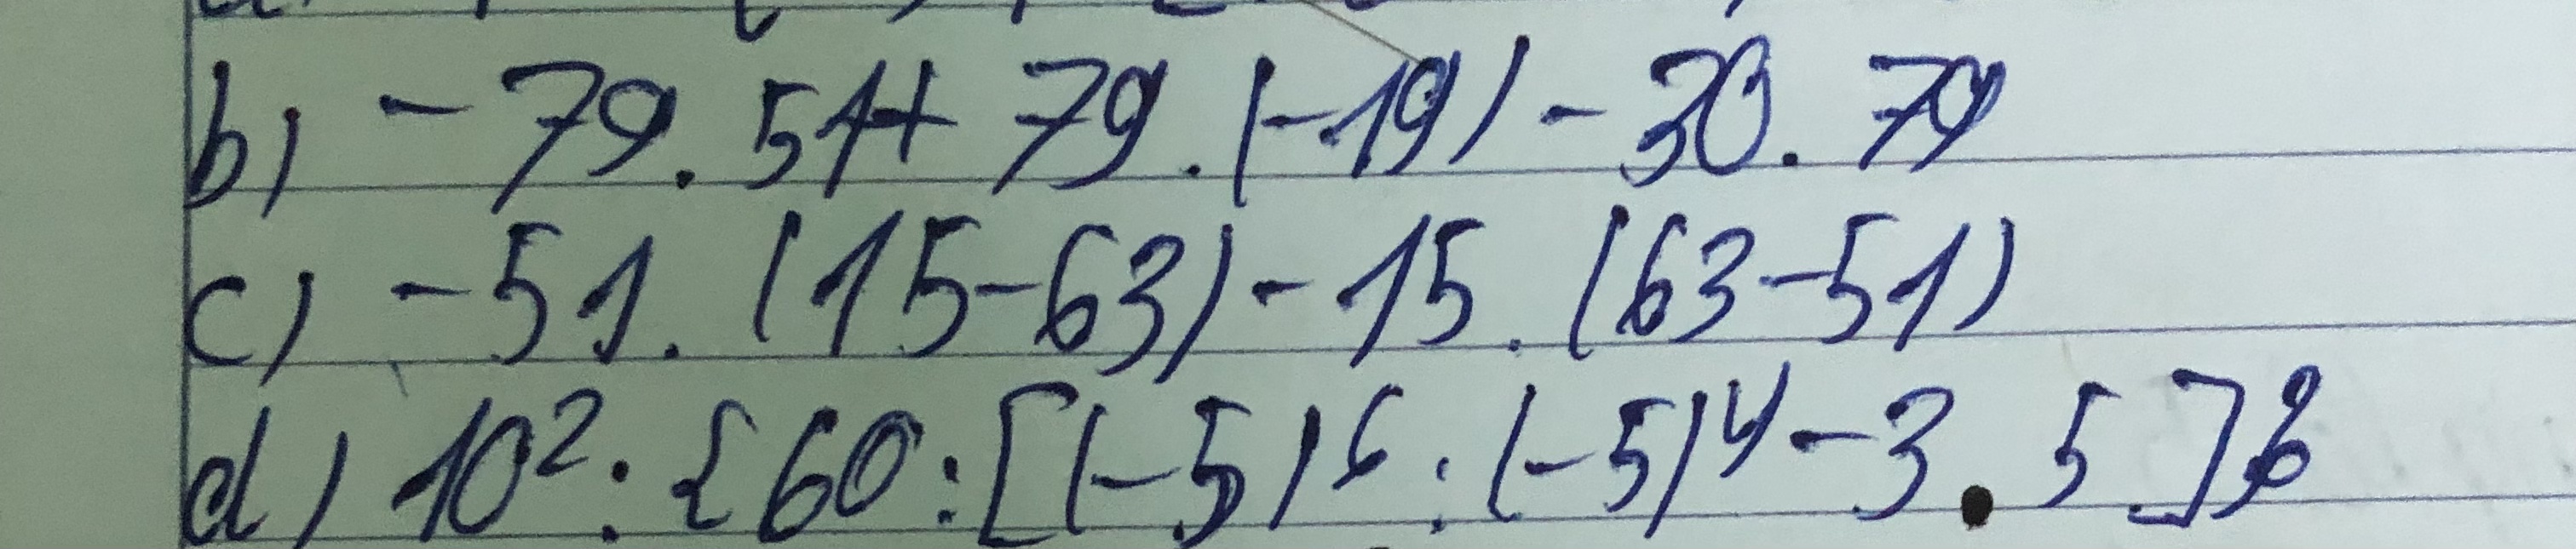 b) -79.51+ 79.(-19) - 30.79
c) -51.(15-63)-15.(63-51)
d) 10²:{60:[(-5)⁶:(-5)⁴-3.5]}